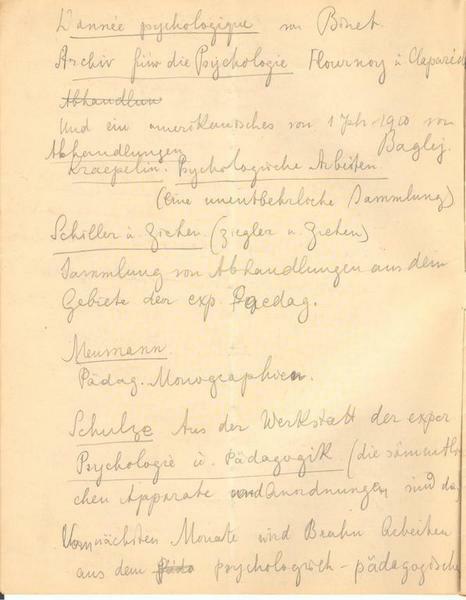 L'année psychologique von Binet
Archiv für die Psychologie Flournoy u Claparéd
Abhandlun
Und ein amerikanisches von 1 Jah 1910 von
Abhandlungen Bagley.
Kraepelin. Psychologische Arbeiten
(Eine unentbehrliche Sammlung)
Schiller u Ziehen (Ziegler u. Ziehen)
Sammlung von Abhandlungen aus dem
Gebiete der exp. Paedag.
Meumann
Pädag. Monographien.
Schulze Aus der Werkstatt der exper
Psychologie u. Pädagogik (die sämmtli
chen Apparate und Anordnungen sind da
Vom nächsten Monate wird Brahn Arbeiten
aus dem psychologisch-pädagogische